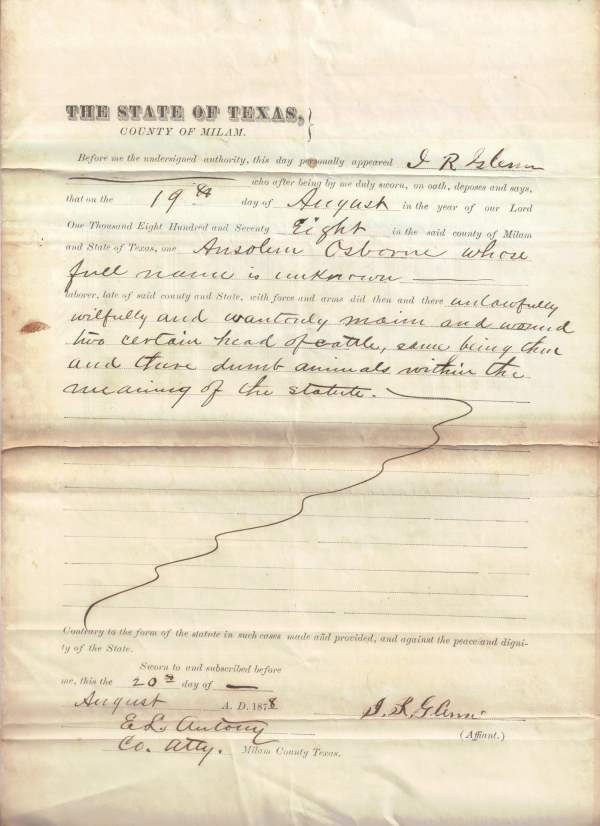 THE STATE OF TEXAS,
COUNTY OF MILAM.
Before me the undersigned authority, this day personally appeared J R Glenn
who after being by me duly sworn, on oath, deposes and says,
that on the 19th day of August in the year of our Lord
One Thousand Eight Hundred and Seventy Eight in the said county of Milam
and State of Texas, one Ansolem Osborne whose
full name is unknown
laborer, late of said county and State, with force and arms did then and there unlawfully
wilfully and wantonly maim and wound
two certain head of cattle, same being then
and there dumb animals within the
meaning of the statute.
Contrary to the form of the statute in such cases made and provided, and against the peace and digni-
ty of the State.
Sworn to and subscribed before
me, this the 20th day of
August A. D. 1878
J. R. Glenn
E. L. Antony
(Affiant.)
Co. Atty. Milam County Texas.